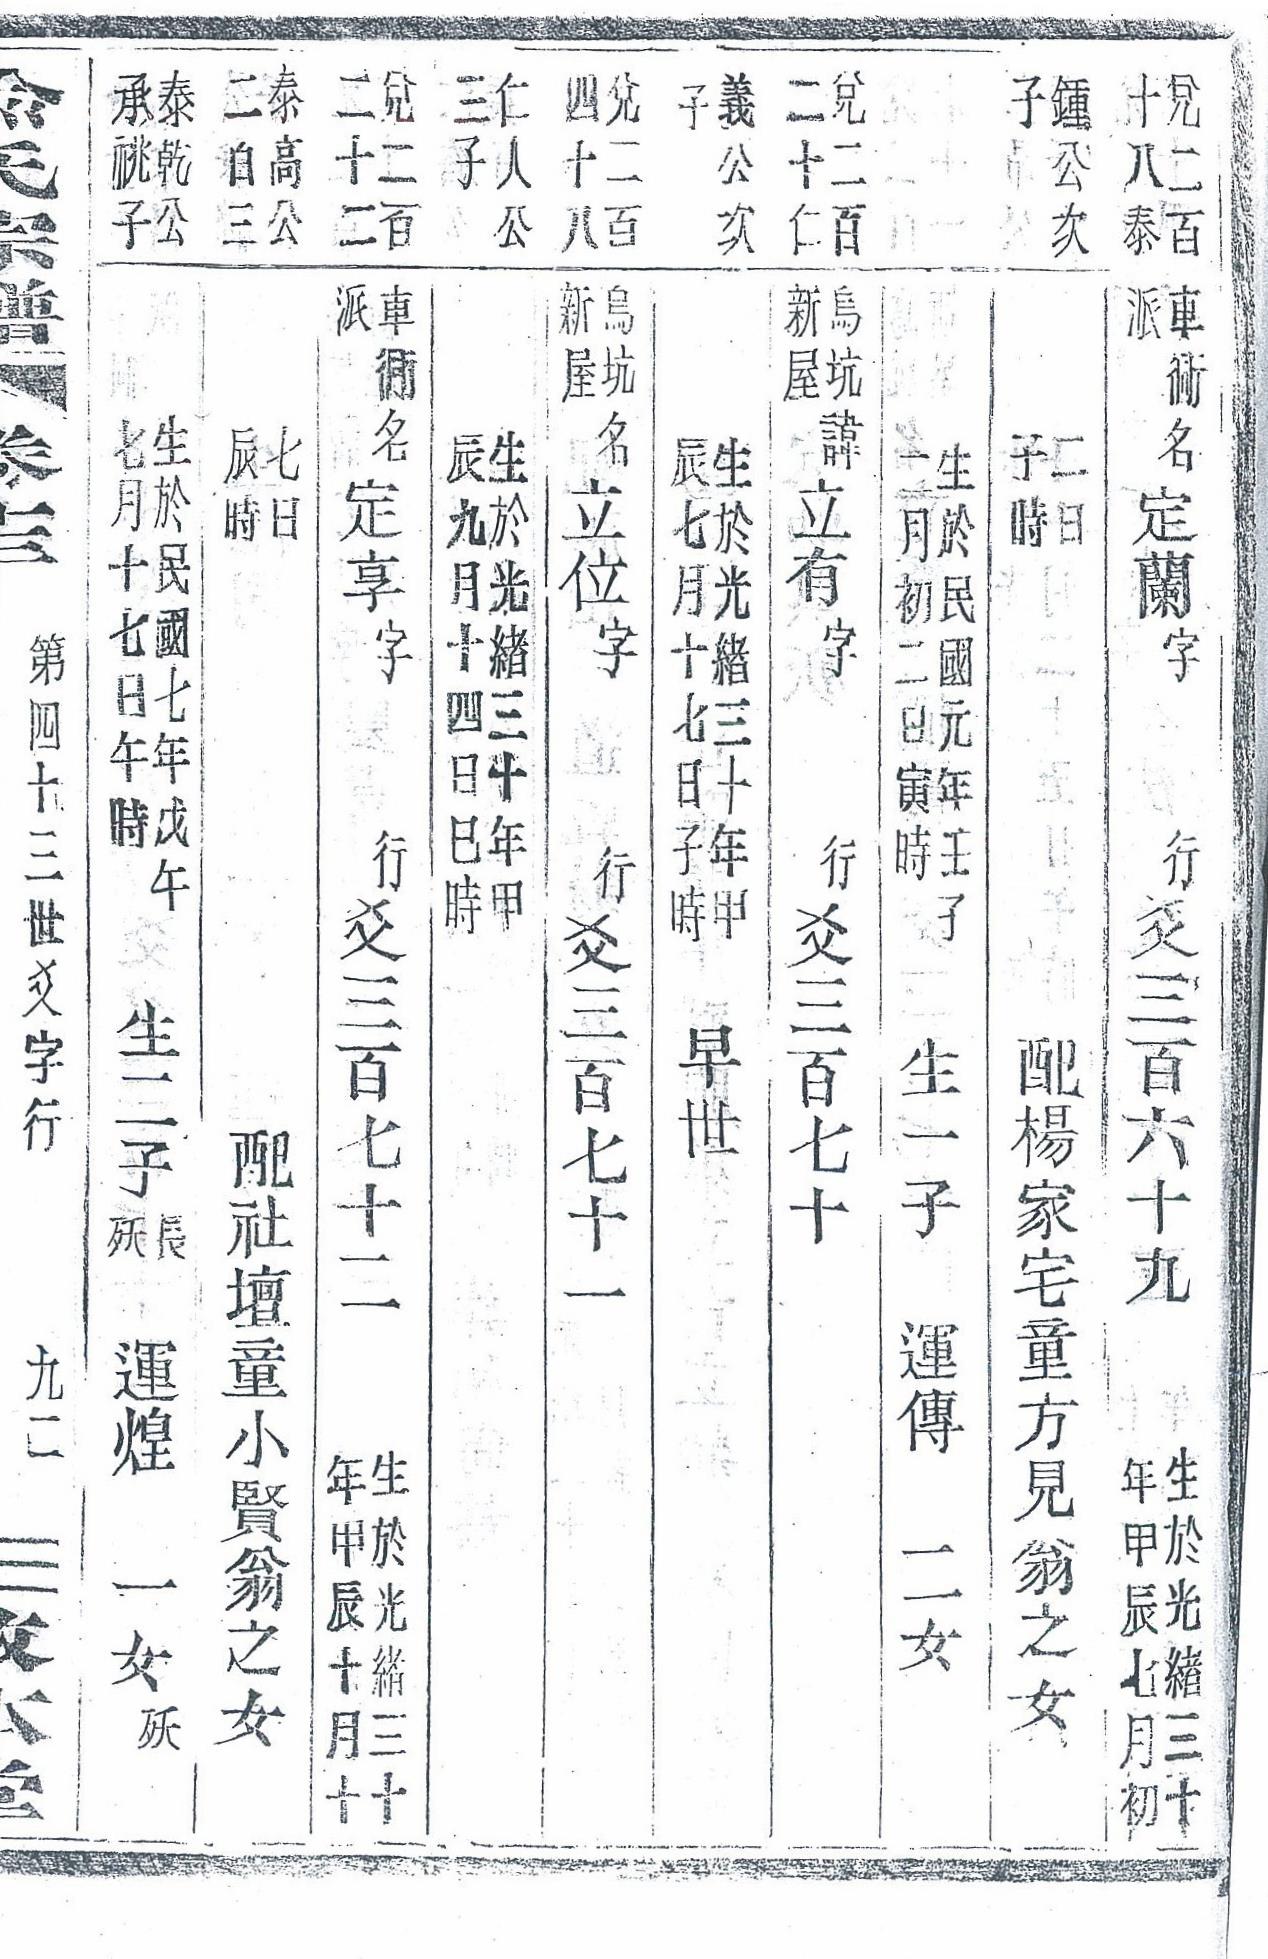 兌二百
十八泰
車衕
派
名定蘭字　行爻三百六十九
生於光緒三十
年甲辰七月初
鍾公次
子
二日
子時
配楊家宅童方見翁之女
生於民國元年壬子
二月初二日寅時
生一子　運傳　二女
兌二百
二十仁
烏坑
新屋
諱立有字　行爻三百七十
義公次
子
生於光緒三十年甲
辰七月十七日子時
早世
兌二百
四十八
烏坑
新屋
名立位字　行爻三百七十一
仁人公
三子
生於光緒三十年甲
辰九月十四日巳時
兌二百
二十二
車衕
派
名定享字　行爻三百七十二
生於光緒三十
年甲辰十月十
泰高公
二百三
七日
辰時
配社壇童小賢翁之女
泰乾公
承祧子
生於民國七年戊午
七月十七日午時
生二子
長
殀
運煌　一女殀
氏宗譜　卷三　第四十三世爻字行　九二　敦本堂